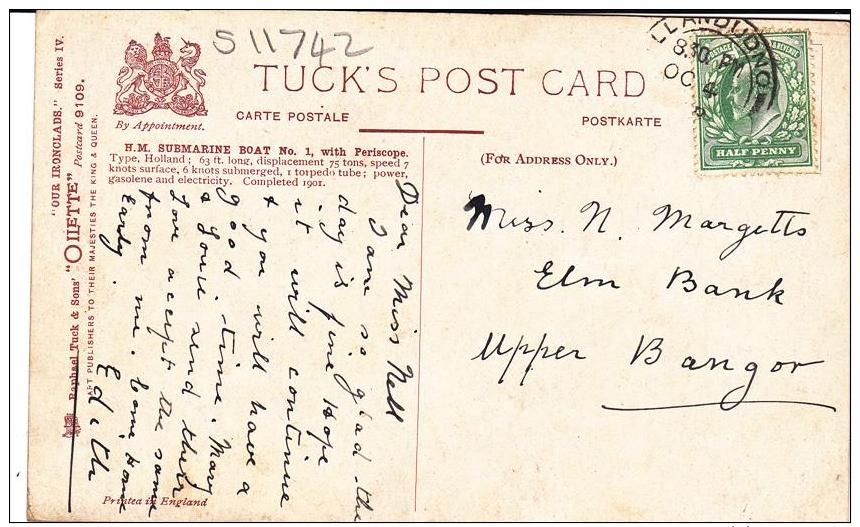 S 11742
"OUR IRONCLADS." Series IV.
Raphael Tuck & Sons' "OILETTE" Postcard 9109.
ART PUBLISHERS TO THEIR MAJESTIES THE KING & QUEEN.
By Appointment.
TUCK'S POST CARD
CARTE POSTALE
POSTKARTE
H.M. SUBMARINE BOAT No. 1, with Periscope.
Type, Holland; 63 ft. long, displacement 75 tons, speed 7
knots surface, 6 knots submerged, 1 torpedo tube; power,
gasolene and electricity. Completed 1901.
(FOR ADDRESS ONLY.)
LLANDUDNO
8.30 PM
OC 4
POSTAGE & REVENUE
HALF PENNY
Dear Miss Nell
I am so glad the
day is fine Hope
it will continue
& you will have a
good time. Mary
& Louie send their
Love accept the same
from me. Come Home
Early. Edith
Miss. N. Margetts
Elm Bank
Upper Bangor
Printed in England